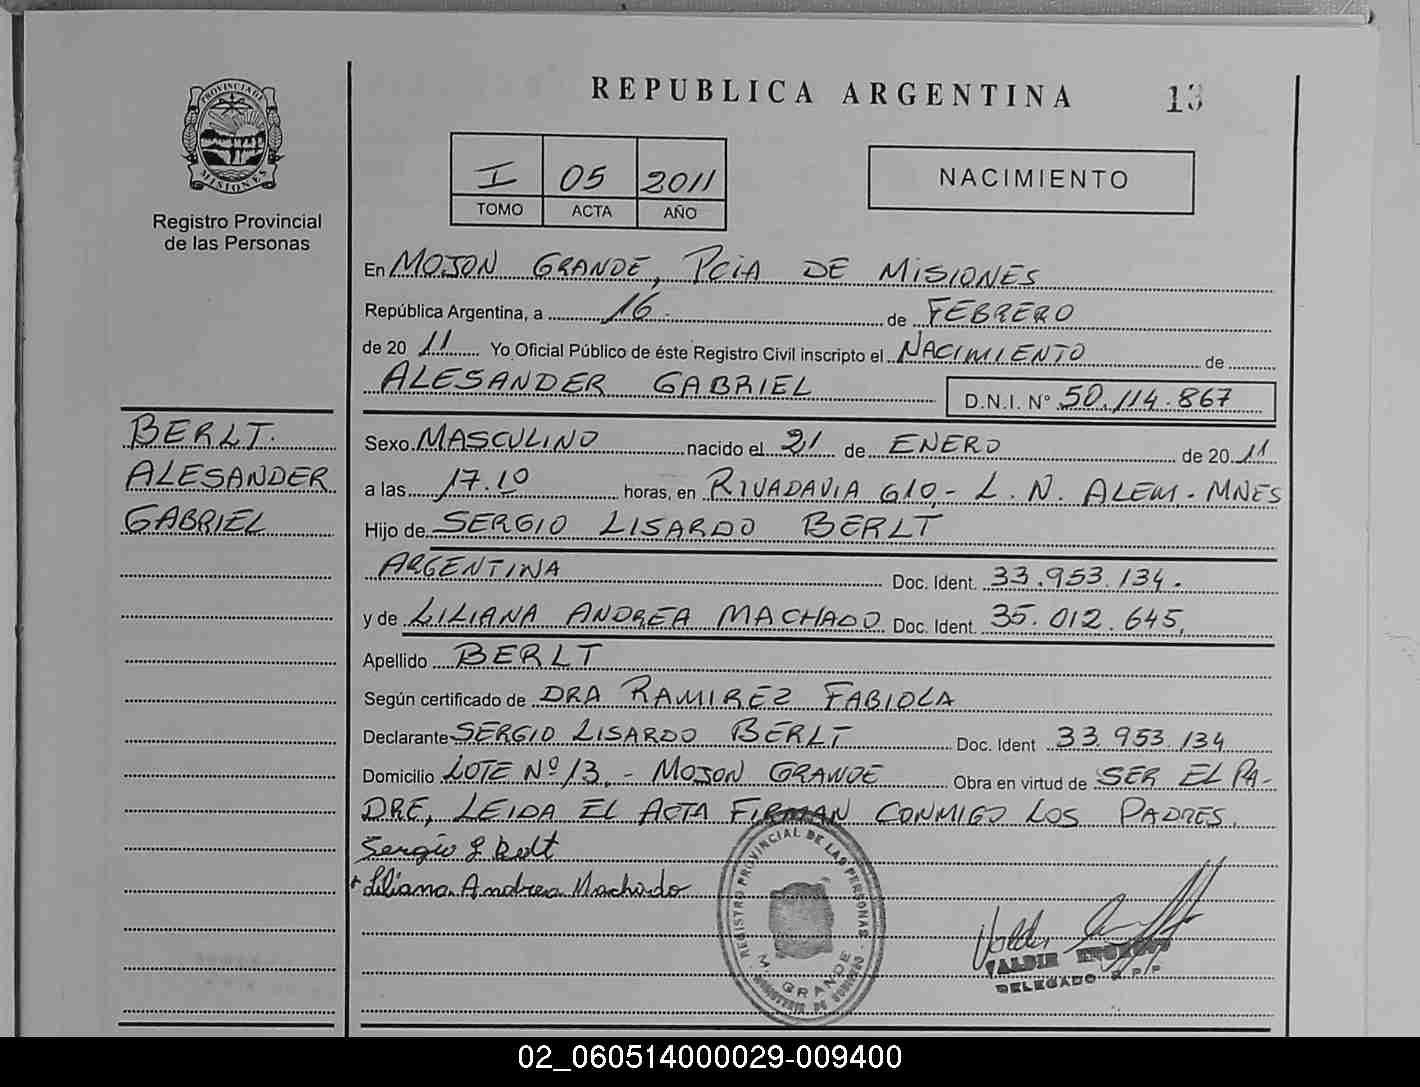 REPUBLICA ARGENTINA
13
PROVINCIA DE
MISIONES
Registro Provincial
de las Personas
I 05 2011
TOMO ACTA AÑO
NACIMIENTO
En MOJON GRANDE, PCIA DE MISIONES
República Argentina, a 16. de FEBRERO
de 20 11 Yo Oficial Público de éste Registro Civil inscripto el NACIMIENTO de
ALESANDER GABRIEL D.N.I. N° 50.114.867
BERLT.
ALESANDER
GABRIEL
Sexo MASCULINO nacido el 21 de ENERO de 20 11
a las 17.10 horas, en RIVADAVIA 610,- L. N. ALEM. MNES
Hijo de SERGIO LISARDO BERLT
ARGENTINA Doc. Ident. 33.953.134.
y de LILIANA ANDREA MACHADO Doc. Ident. 35.012.645,
Apellido BERLT
Según certificado de DRA RAMIREZ FABIOLA
Declarante SERGIO LISARDO BERLT Doc. Ident 33.953.134
Domicilio LOTE Nº 13,- MOJON GRANDE Obra en virtud de SER EL PA-
DRE, LEIDA EL ACTA FIRMAN CONMIGO LOS PADRES.
Sergio L Berlt
Liliana Andrea Machado
REGISTRO PROVINCIAL DE LAS PERSONAS
M. GRANDE
MINISTERIO DE GOBIERNO
Valdir
VALDIR
DELEGADO R.P.P
02_060514000029-009400